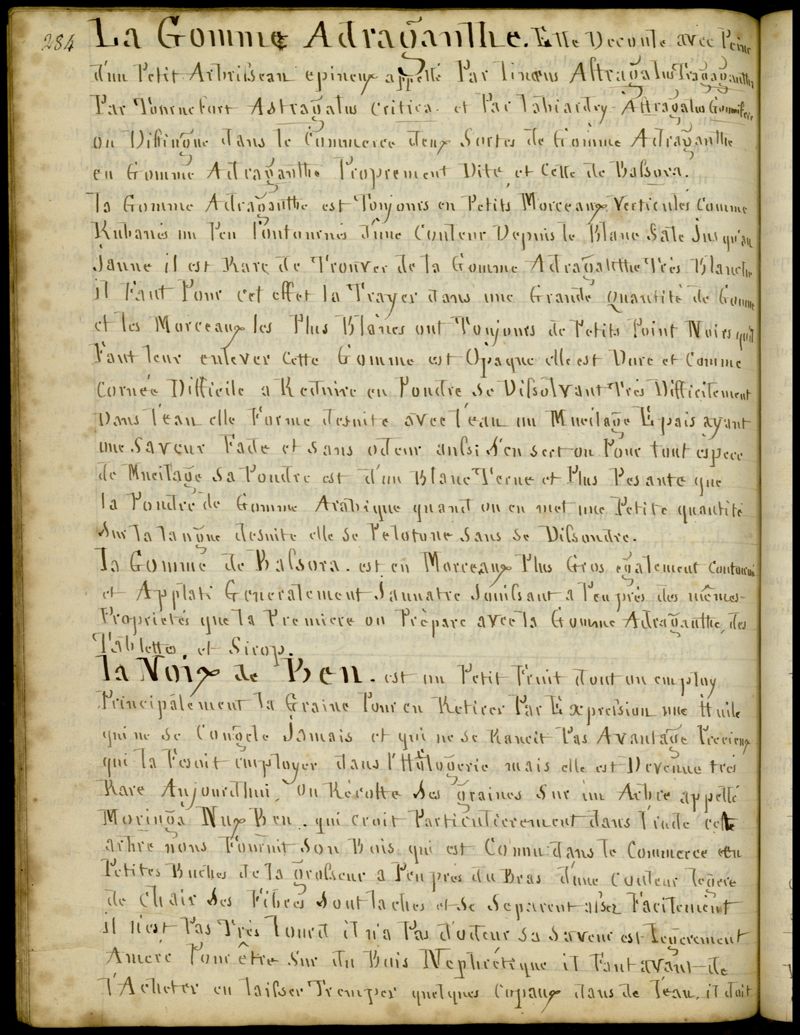 284 La Gomme Adraganthe. Elle Decoule avec Peine
d'un Petit Arbrisseau epineux appellé Par lineus Astragalus Tragagantha
Par Tournefort Astragalus Critica. et Par labiardry Astragalus Gummifere
on Distingue dans le Commerce deux Sortes de Gomme Adraganthe
en Gomme Adraganthe Proprement Dite et Celle de Bassora.
la Gomme Adraganthe est Toujours en Petits Morceaux Verticules Comme
Rubanés un Peu Contournés d'une Couleur Depuis le Blanc Sale Jusqu'au
Jaune il est Rare de Trouver de la Gomme Adraganthe Très Blanche
il Faut Pour cet effet la Trayer dans une Grande Quantité de Gomme
et les Morceaux les Plus Blancs ont Toujours de Petits Point Noirs qu'il
Faut leur enlever Cette Gomme est Opaque elle est Dure et Comme
Cornée Difficile a Reduire en Poudre Se Dissolvant Très Difficilement
Dans l'eau elle Forme desuite avec l'eau un Mucilage Epais ayant
une Saveur Fade et Sans odeur aussi S'en sert on Pour tout espece
de Mucilage Sa Poudre est d'un Blanc Terne et Plus Pesante que
la Poudre de Gomme Arabique quand on en met une Petite quantité
Sur la langue desuite elle Se Pelotone Sans Se Dissoudre.
la Gomme de Bassora. est en Morceaux Plus Gros egalement Contourné
et Applati Generalement Jaunatre Jouissant a Peu près des mêmes
Proprietés que la Premiere on Prépare avec la Gomme Adraganthe, des
Tablettes, et Sirop.
la Noix de Ben. est un Petit Fruit dont on employ
Principalement la Graine Pour en Retirer Par Expression une Huile
qui ne Se Congele Jamais et qui ne Se Rancit Pas Avantage Precieux
qui la Fesoit employer dans l'Hologerie mais elle est Devenue très
Rare Aujourdhui, On Récolte Ses graines Sur un Arbre appellé
Moringa Nux Ben. qui croit Particulierement dans l'inde cette
arbre nous Fournit Son Bois qui est Connu dans le Commerce en
Petites Buches de la grosseur a Peu près du Bras d'une Couleur legere
de Chair Ses Fibres Sont laches et Se Separent assez Facilement
il n'est Pas Très lourd il n'a Pas d'odeur Sa Saveur est legerement
Amere Pour être Sur du Bois Nephrétique il Faut avant de
l'Acheter en laisser Tremper quelques Copaux dans de l'eau, il doit